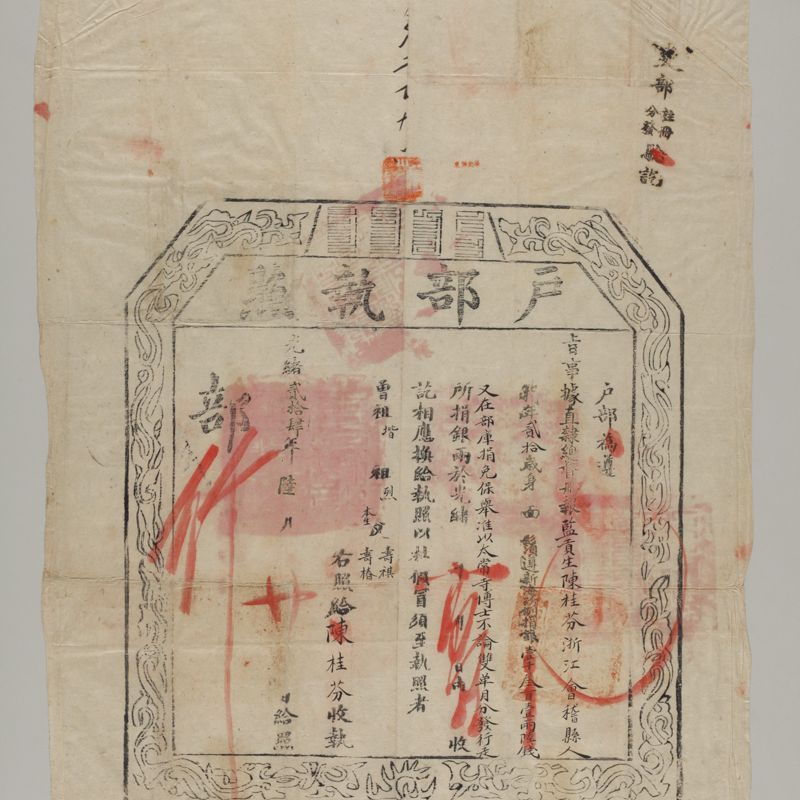 吏部
註冊
分發
驗訖
戶部執照
戶部為遵
旨事據直隸總督冊報監貢生陳桂芬浙江會稽縣人
現年貳拾歲身 面 鬚遵新海防例捐銀壹千叁百壹兩陸錢
又在部庫捐免保舉准以太常寺博士不論雙單月分發行走
所捐銀兩於光緒 年 月 日由 收
訖相應換給執照以杜假冒須至執照者
曾祖堦 祖烈 本生父 壽祺
壽椿
右照給陳桂芬收執
光緒貳拾肆年 陸 月 廿 日給照
部